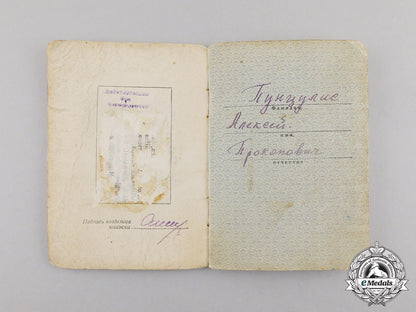 Подпись владельца
книжки
Пунцулис
Фамилия
Алексей.
имя
Прокопович
отчество
eMedals